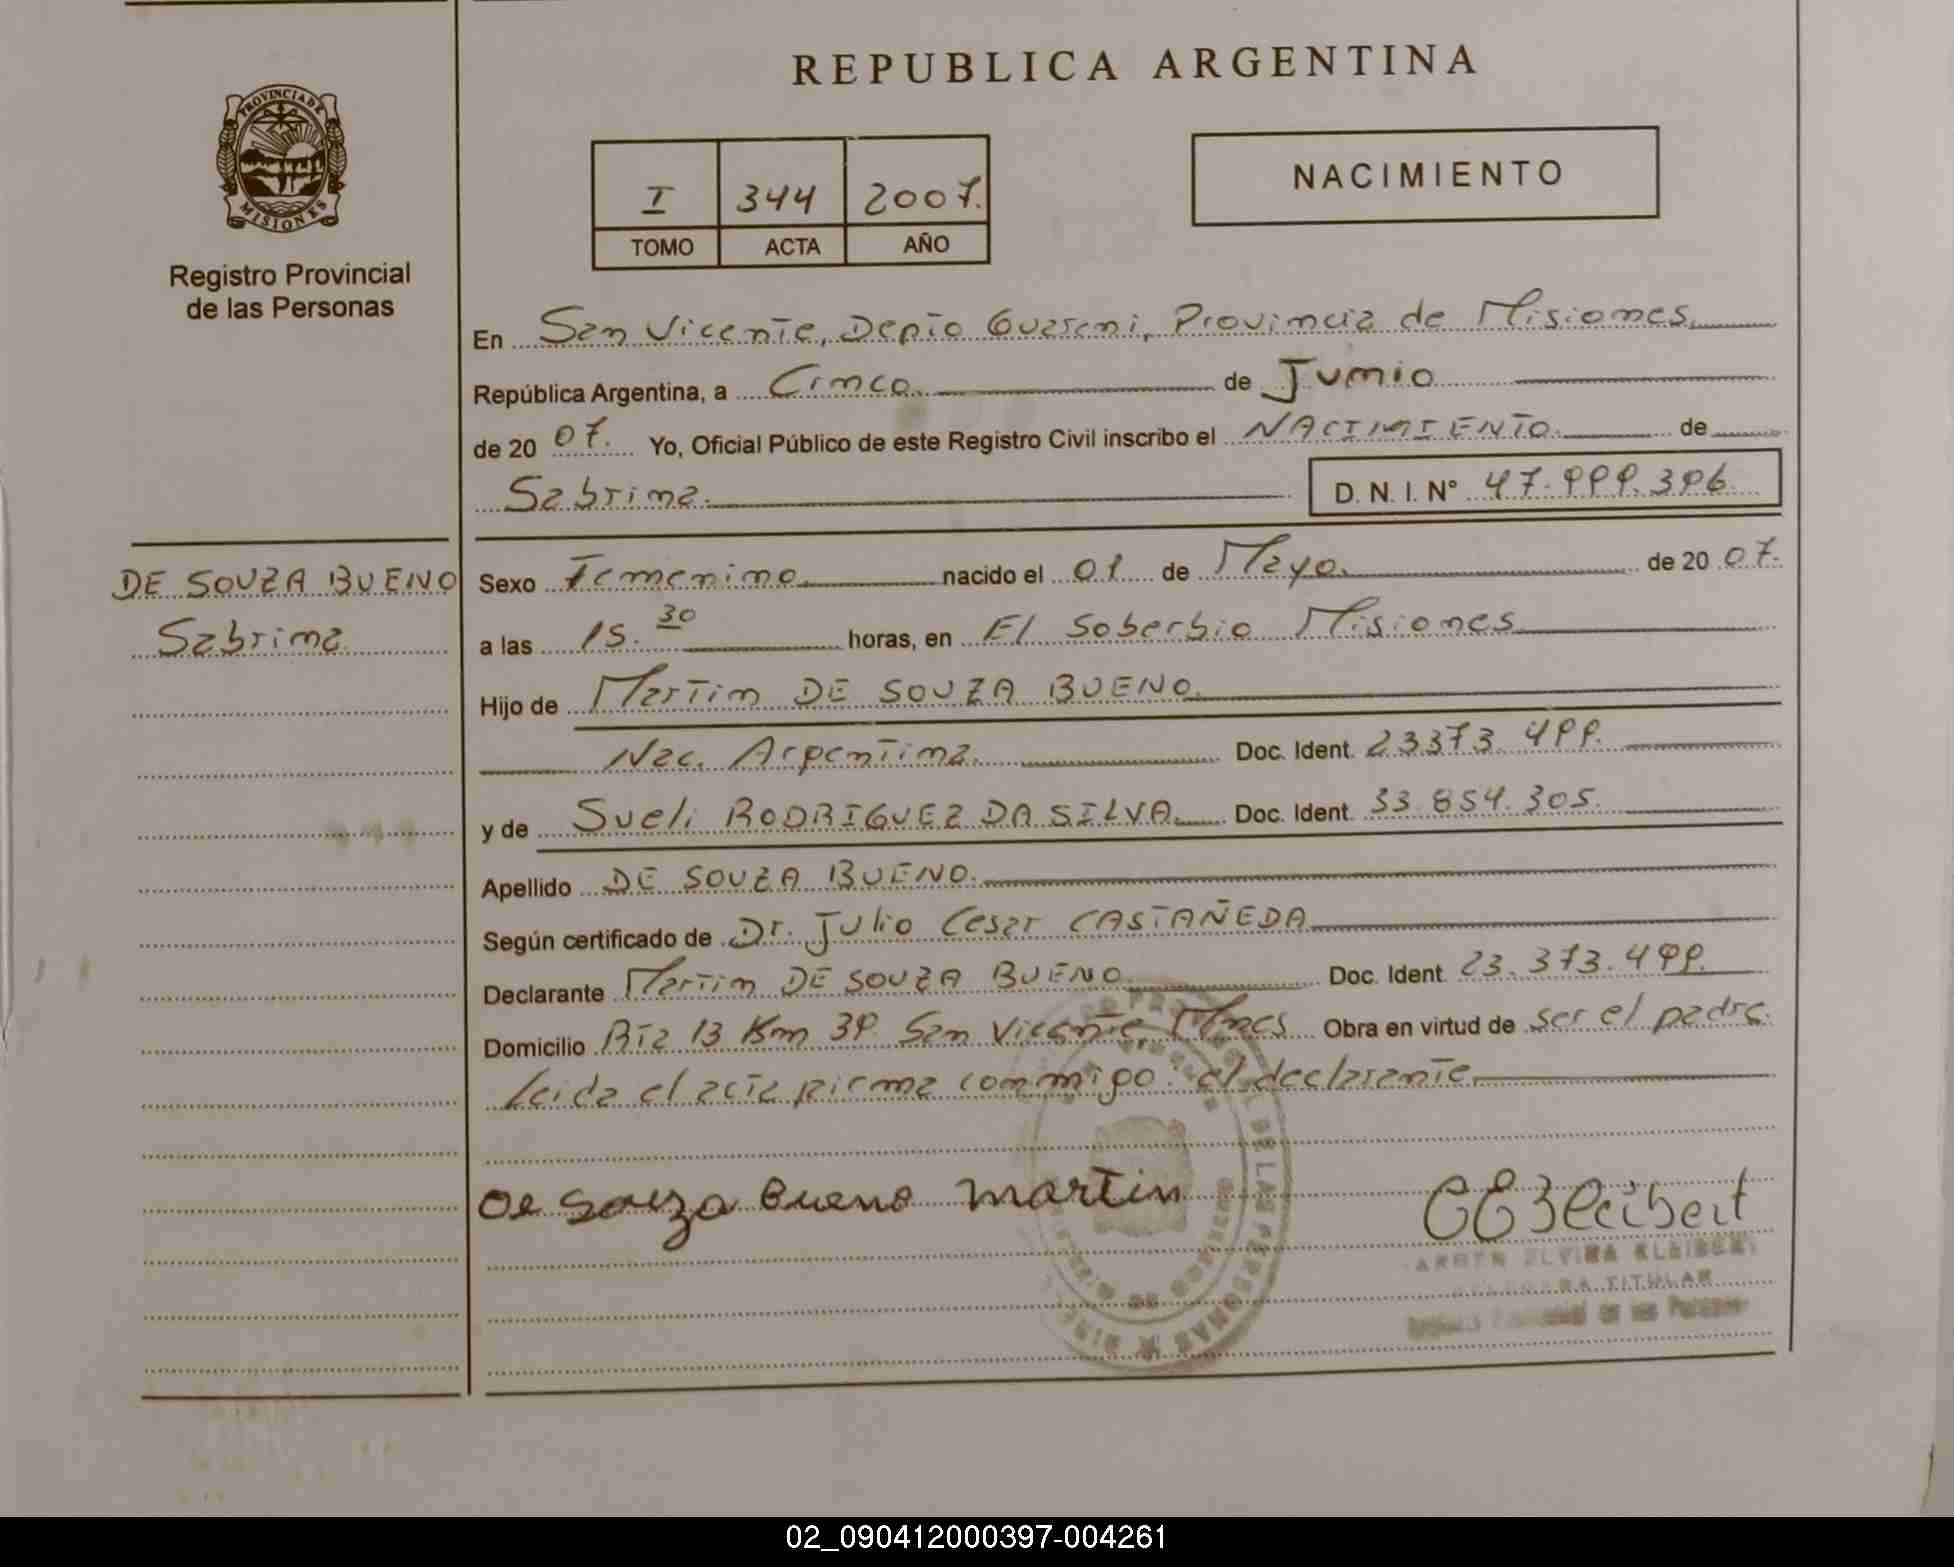 REPUBLICA ARGENTINA
PROVINCIA DE
MISIONES
Registro Provincial
de las Personas
I 344 2007.
TOMO ACTA AÑO
NACIMIENTO
En San Vicente, Depto Guarani, Provincia de Misiones
República Argentina, a Cinco. de Junio
de 20 07. Yo, Oficial Público de este Registro Civil inscribo el NACIMIENTO. de
Sabrina. D. N. I. N° 47.999.396
DE SOUZA BUENO
Sabrina
Sexo Femenino nacido el 01 de Mayo. de 20 07.
a las 15.30 horas, en El Soberbio Misiones
Hijo de Martin DE SOUZA BUENO
Nac. Argentina. Doc. Ident. 23373.499.
y de Sueli RODRIGUEZ DA SILVA Doc. Ident. 33.854.305.
Apellido DE SOUZA BUENO.
Según certificado de Dr. Julio Cesar CASTAÑEDA
Declarante Martin DE SOUZA BUENO Doc. Ident. 23.373.499.
Domicilio Rta 13 Km 39 San Vicente Mnes Obra en virtud de ser el padre.
Leida el acta firma conmigo: el declarante
De Souza Bueno Martin
CEKleibert
ELVIRA KLEIBER
TITULAR
DE LAS PERSONAS
02_090412000397-004261